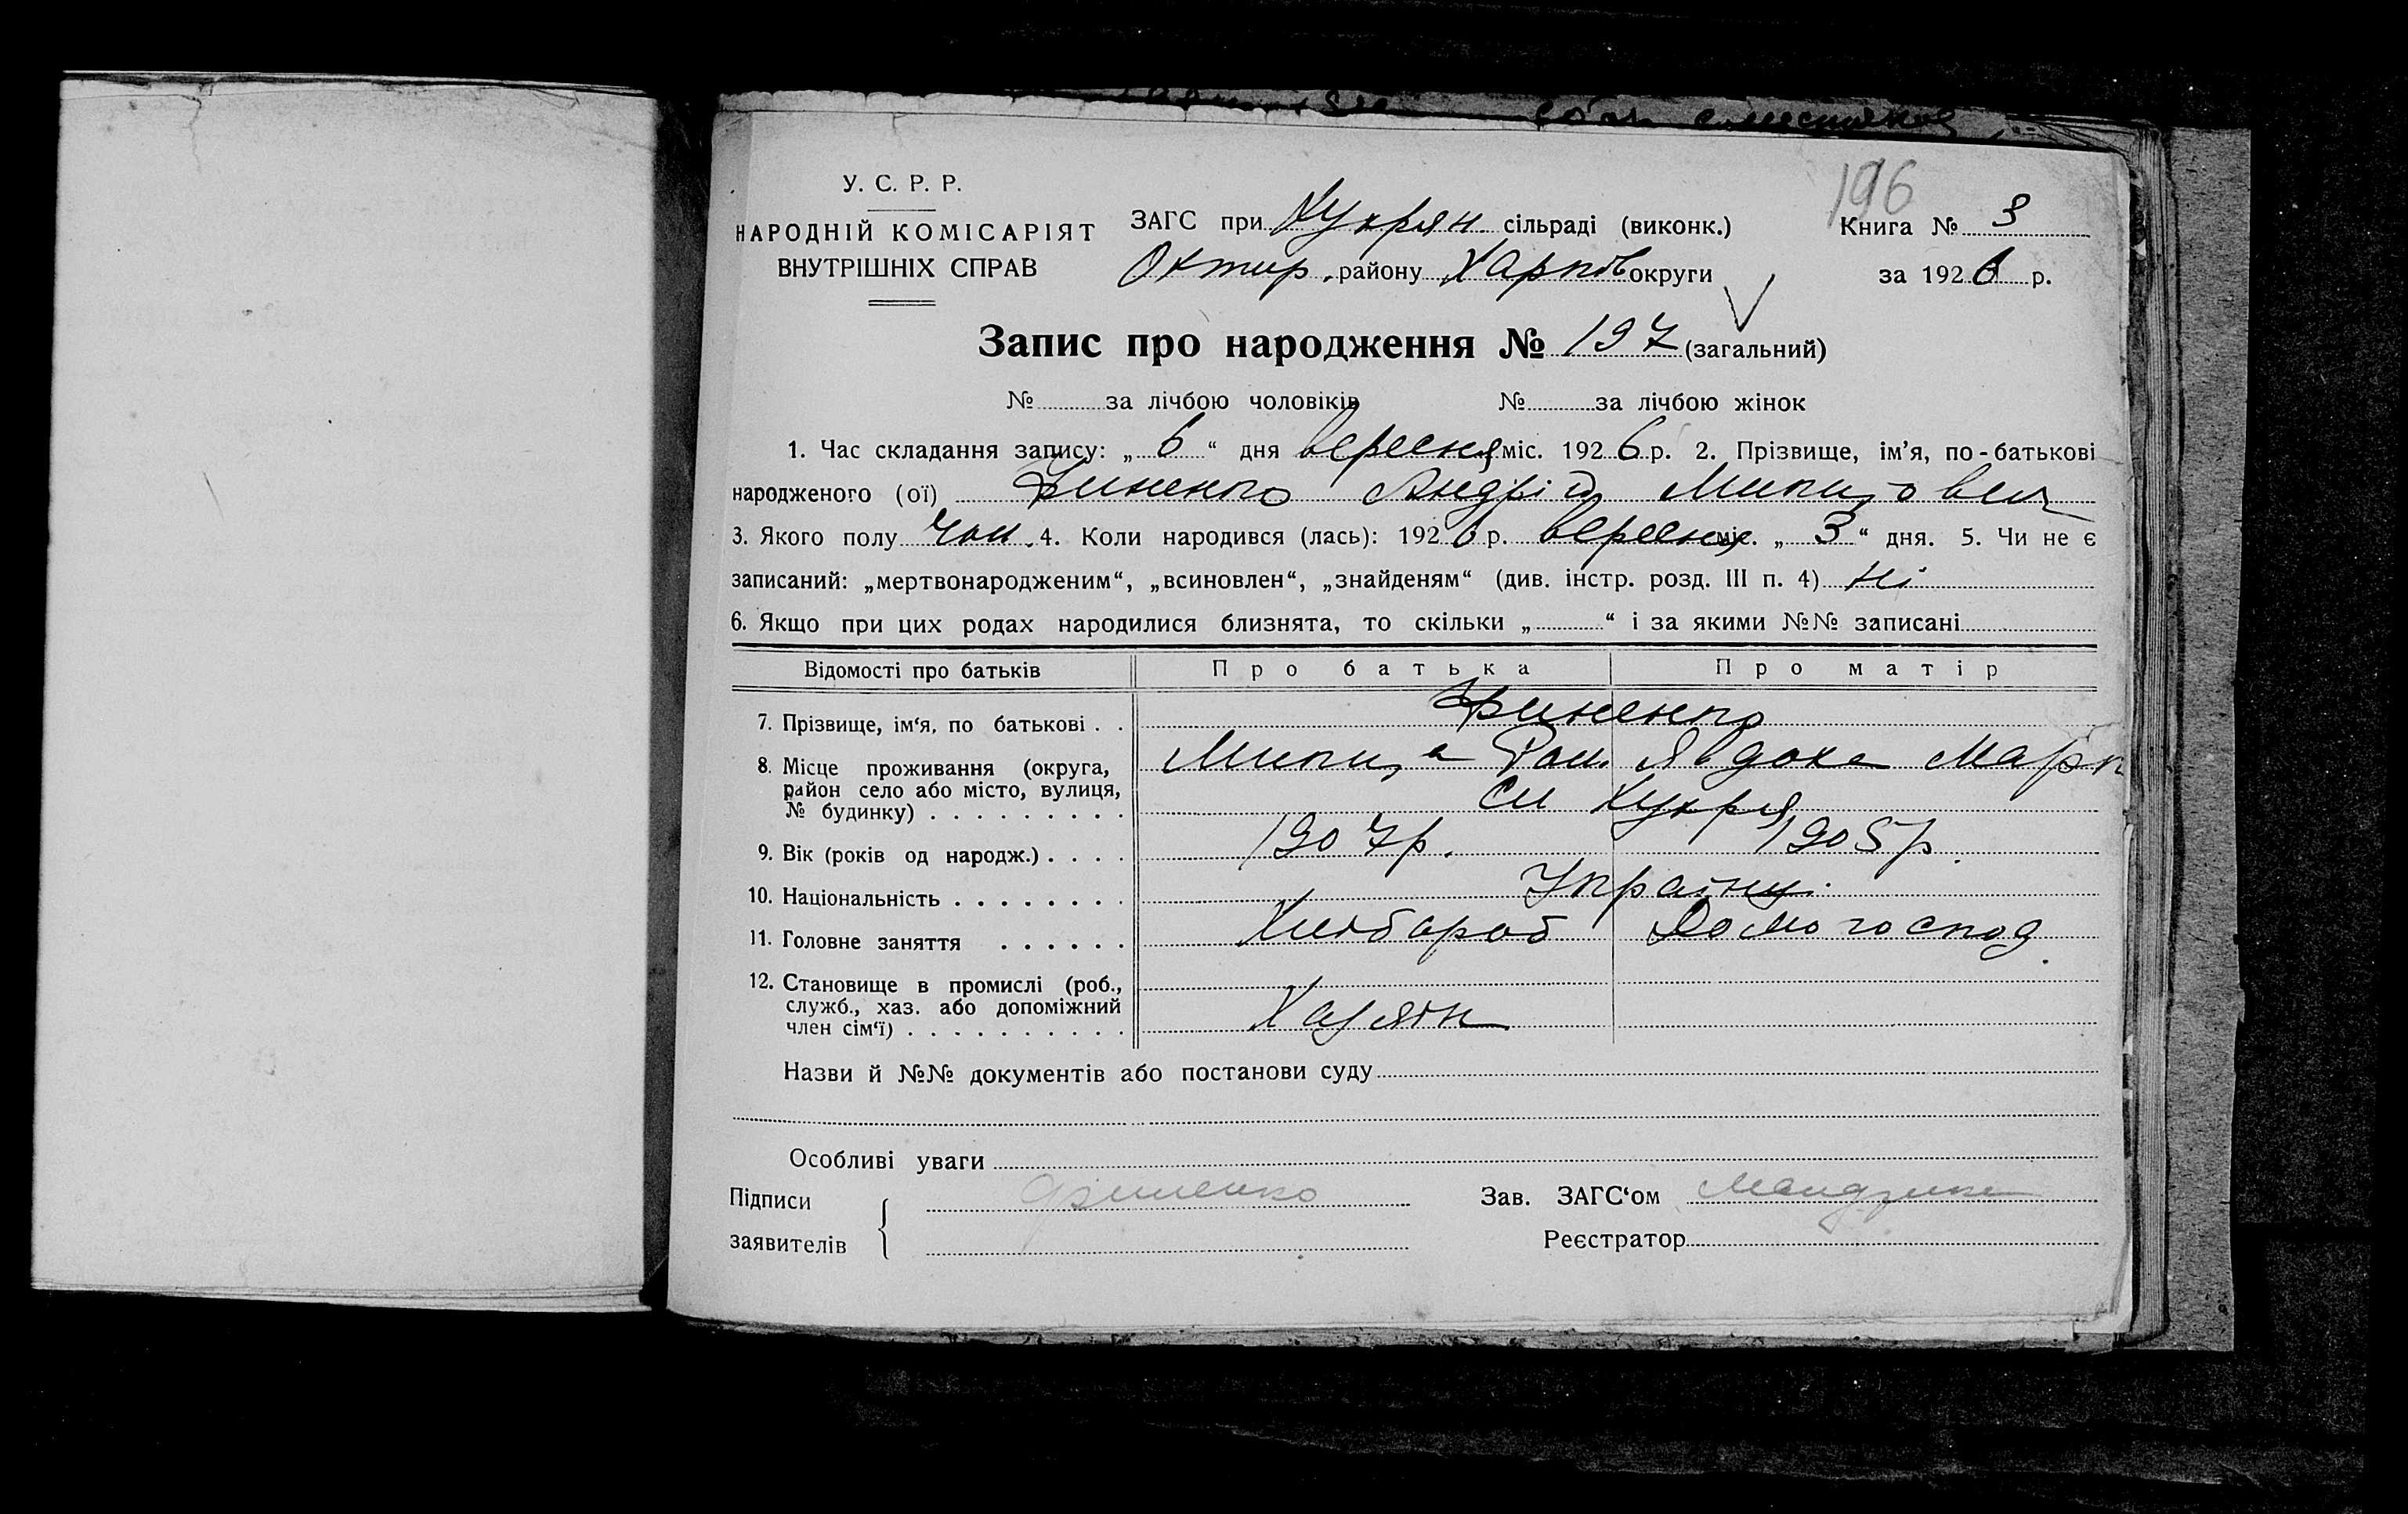 196
У. С. Р. Р.
НАРОДНІЙ КОМІСАРІЯТ
ВНУТРІШНІХ СПРАВ
ЗАГС при Хухрян сільраді (виконк.)
Охтир. району Харків округи
Книга № 3
за 1926 р.
Запис про народження № 197 (загальний)
№ за лічбою чоловіків № за лічбою жінок
1. Час складання запису: „ 6 “ дня вересня міс. 1926 р. 2. Прізвище, ім'я, по-батькові
народженого (ої) Финенко Андрій Микитович
3. Якого полу чол. 4. Коли народився (лась): 1926 р. вересня міс. „ 3 “ дня. 5. Чи не є
записаний: „мертвонародженим“, „всиновлен“, „знайденям“ (див. інстр. розд. III п. 4) Ні
6. Якщо при цих родах народилися близнята, то скільки „ “ і за якими №№ записані
Відомості про батьків Про батька Про матір
7. Прізвище, ім‘я, по батькові . . Финенко
8. Місце проживання (округа, Микита Ром. Явдоха Марк
район село або місто, вулиця,
№ будинку) . . . . . . . . . сл Хухря
9. Вік (років од народж.) . . . . 1907р. 1905р.
10. Національність . . . . . . . . Українц.
11. Головне заняття . . . . . . Хлібороб Домогоспод.
12. Становище в промислі (роб.,
служб., хаз. або допоміжний
член сім‘ї) . . . . . . . . . . Хазяїн
Назви й №№ документів або постанови суду
Особливі уваги
Підписи
заявителів
Финенко
Зав. ЗАГС‘ом
Реєстратор